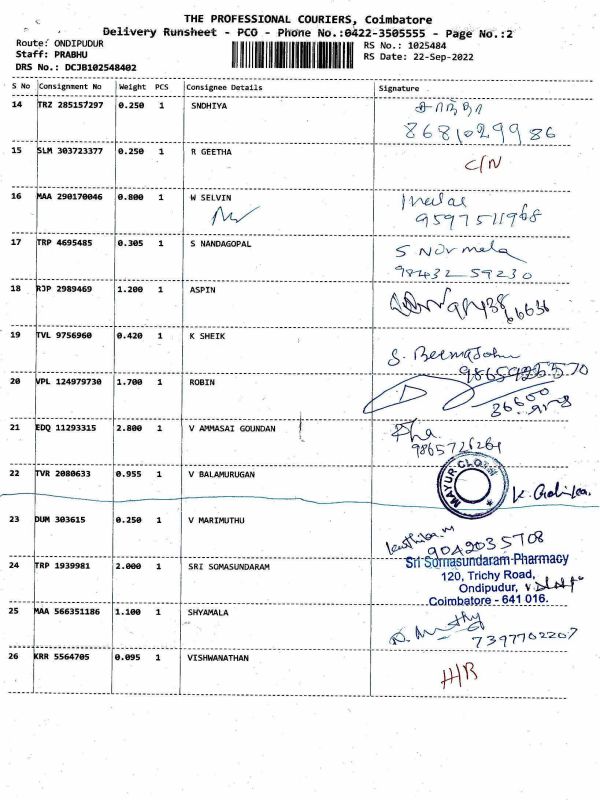 THE PROFESSIONAL COURIERS, Coimbatore
Delivery Runsheet - PCO - Phone No.:0422-3505555 - Page No.:2
Route: ONDIPUDUR
Staff: PRABHU
DRS No.: DCJB102548402
RS No.: 1025484
RS Date: 22-Sep-2022
S No Consignment No Weight PCS Consignee Details Signature
14 TRZ 285157297 0.250 1 SNDHIYA
8681029986
15 SLM 303723377 0.250 1 R GEETHA C/N
16 MAA 290170046 0.800 1 W SELVIN
9597511968
17 TRP 4695485 0.305 1 S NANDAGOPAL S Nirmela
98432 59230
18 RJP 2989469 1.200 1 ASPIN
19 TVL 9756960 0.420 1 K SHEIK
20 VPL 124979730 1.700 1 ROBIN
21 EDQ 11293315 2.800 1 V AMMASAI GOUNDAN
9865726264
22 TVR 2080633 0.955 1 V BALAMURUGAN MAYUR CLOTH
23 DUM 303615 0.250 1 V MARIMUTHU
9042035708
24 TRP 1939981 2.000 1 SRI SOMASUNDARAM Sri Somasundaram Pharmacy
120, Trichy Road,
Ondipudur,
Coimbatore - 641 016.
25 MAA 566351186 1.100 1 SHYAMALA
7397702207
26 KRR 5564705 0.095 1 VISHWANATHAN